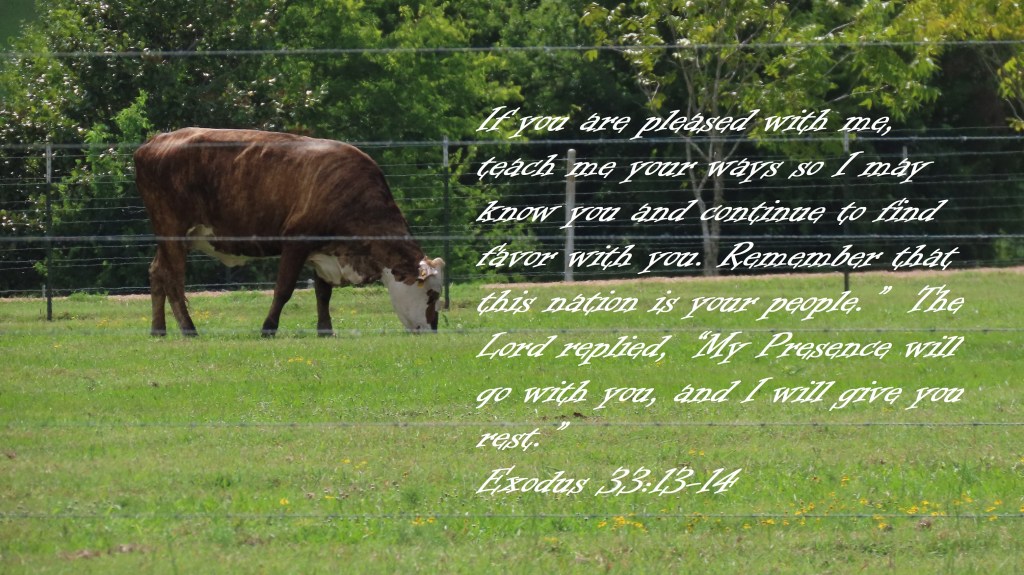 If you are pleased with me,
teach me your ways so I may
know you and continue to find
favor with you. Remember that
this nation is your people.”  The
Lord replied,  “My Presence will
go with you, and I will give you
rest.”
Exodus 33:13-14